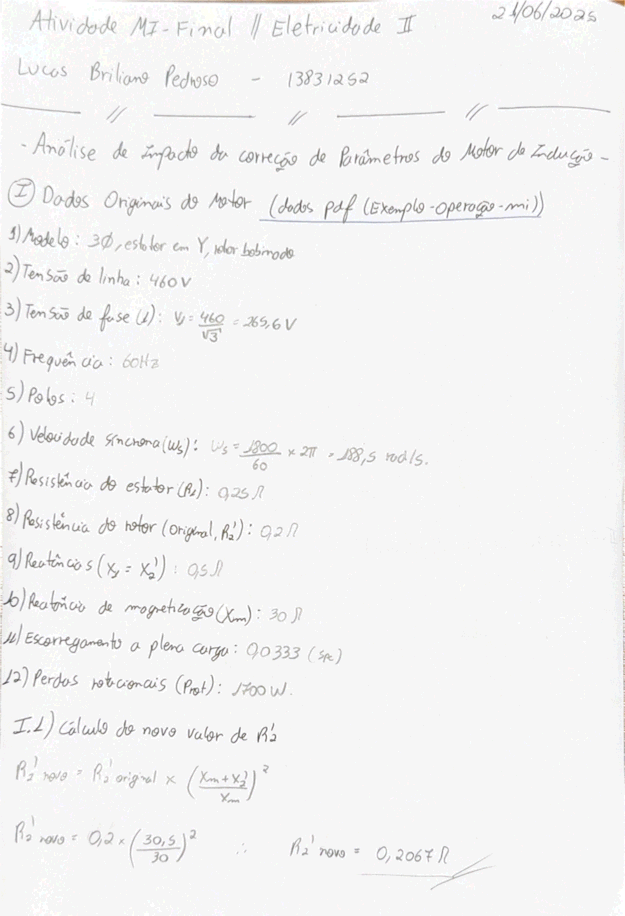 21/06/2025
Atividade MI-Final // Eletricidade II
Lucas Briliano Pedroso - 13831252
// // //
- Análise de Impacto da correção de Parâmetros do Motor de Indução -
I Dados Originais do Motor (dados pdf (Exemplo-Operação-mi))
1) Modelo: 3Ø, estator em Y, rotor bobinado
2) Tensão de linha: 460V
3) Tensão de fase (1): V1 = 460/√3 = 265,6 V
4) Frequência: 60Hz
5) Polos: 4
6) Velocidade síncrona (ws): ws = 1800/60 × 2π = 188,5 rad/s.
7) Resistência do estator (R1): 0,25 Ω
8) Resistência do rotor (original, R2'): 0,2 Ω
9) Reatâncias (X1 = X2'): 0,5 Ω
10) Reatância de magnetização (Xm): 30 Ω
11) Escorregamento a plena carga: 0,0333 (spc)
12) Perdas rotacionais (Prot): 1700 W.
I.1) Cálculo do novo valor de R2'
R2' novo = R2' original × ((Xm + X2')/Xm)²
R2' novo = 0,2 × (30,5/30)² ∴ R2' novo = 0,2067 Ω